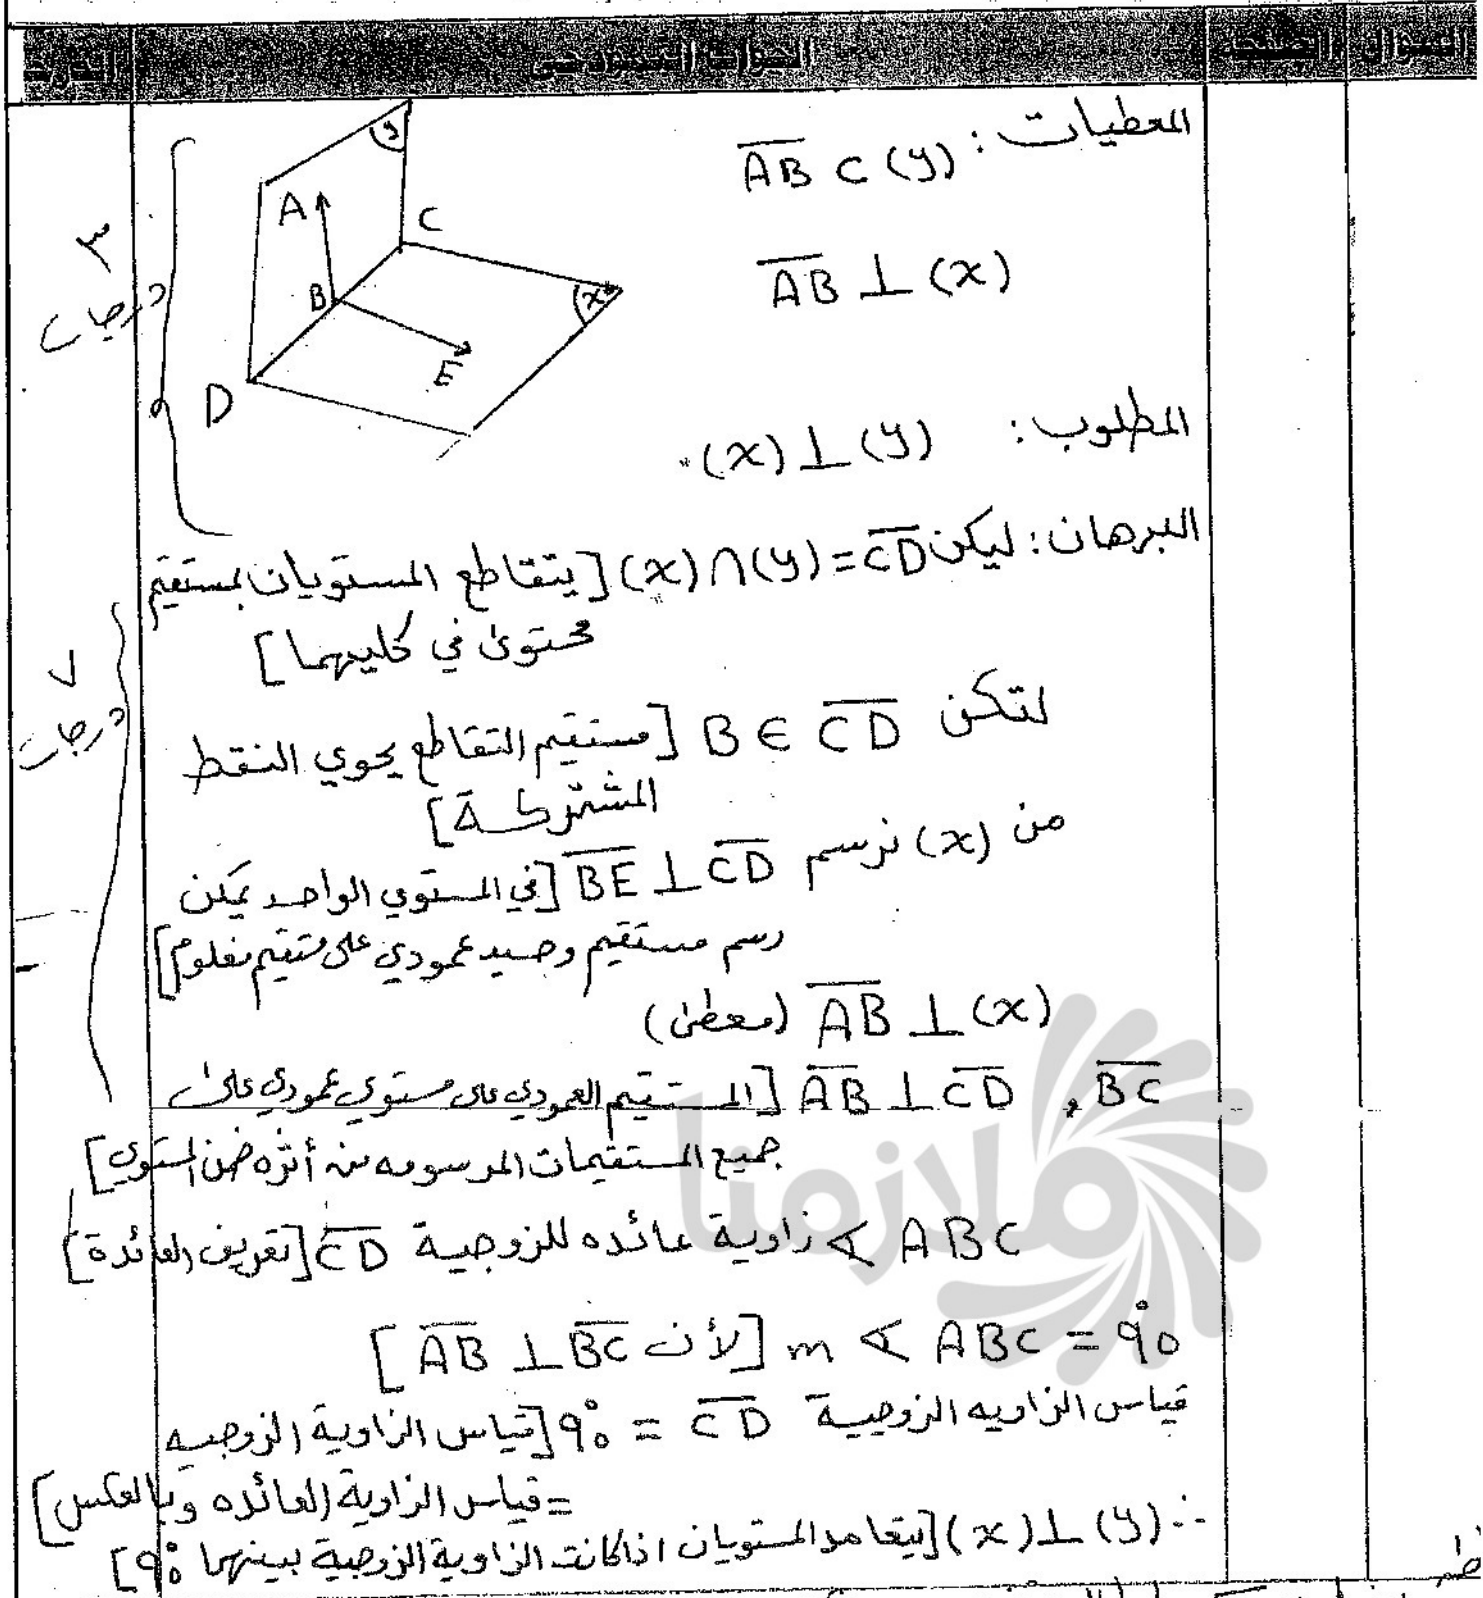 السؤال
الصفحة
الجواب النموذجي
الدرجة
المعطيات: AB ⊂ (y)
AB ⊥ (x)
y
A
C
B
x
E
D
٣
درجات
المطلوب: (x) ⊥ (y)
البرهان: ليكن (x) ∩ (y) = CD [يتقاطع المستويان بمستقيم
محتوى في كليهما]
لتكن B ∈ CD [مستقيم التقاطع يحوي النقط
المشتركة]
٧
درجات
من (x) نرسم BE ⊥ CD [في المستوي الواحد يمكن
رسم مستقيم وحيد عمودي على مستقيم معلوم]
AB ⊥ (x) (معطى)
AB ⊥ CD , BC [المستقيم العمودي على مستوي عمودي على
جميع المستقيمات المرسومه من أثره ضمن المستوي]
∢ ABC زاوية عائده للزوجية CD [تعريف العائدة]
m ∢ ABC = 90° [لأن AB ⊥ BC]
قياس الزاويه الزوجيية CD = 90° [قياس الزاوية الزوجيه
=قياس الزاوية العائده وبالعكس]
∴ (x) ⊥ (y) [يتعامد المستويان اذا كانت الزاوية الزوجية بينهما 90°]
ملازمنا